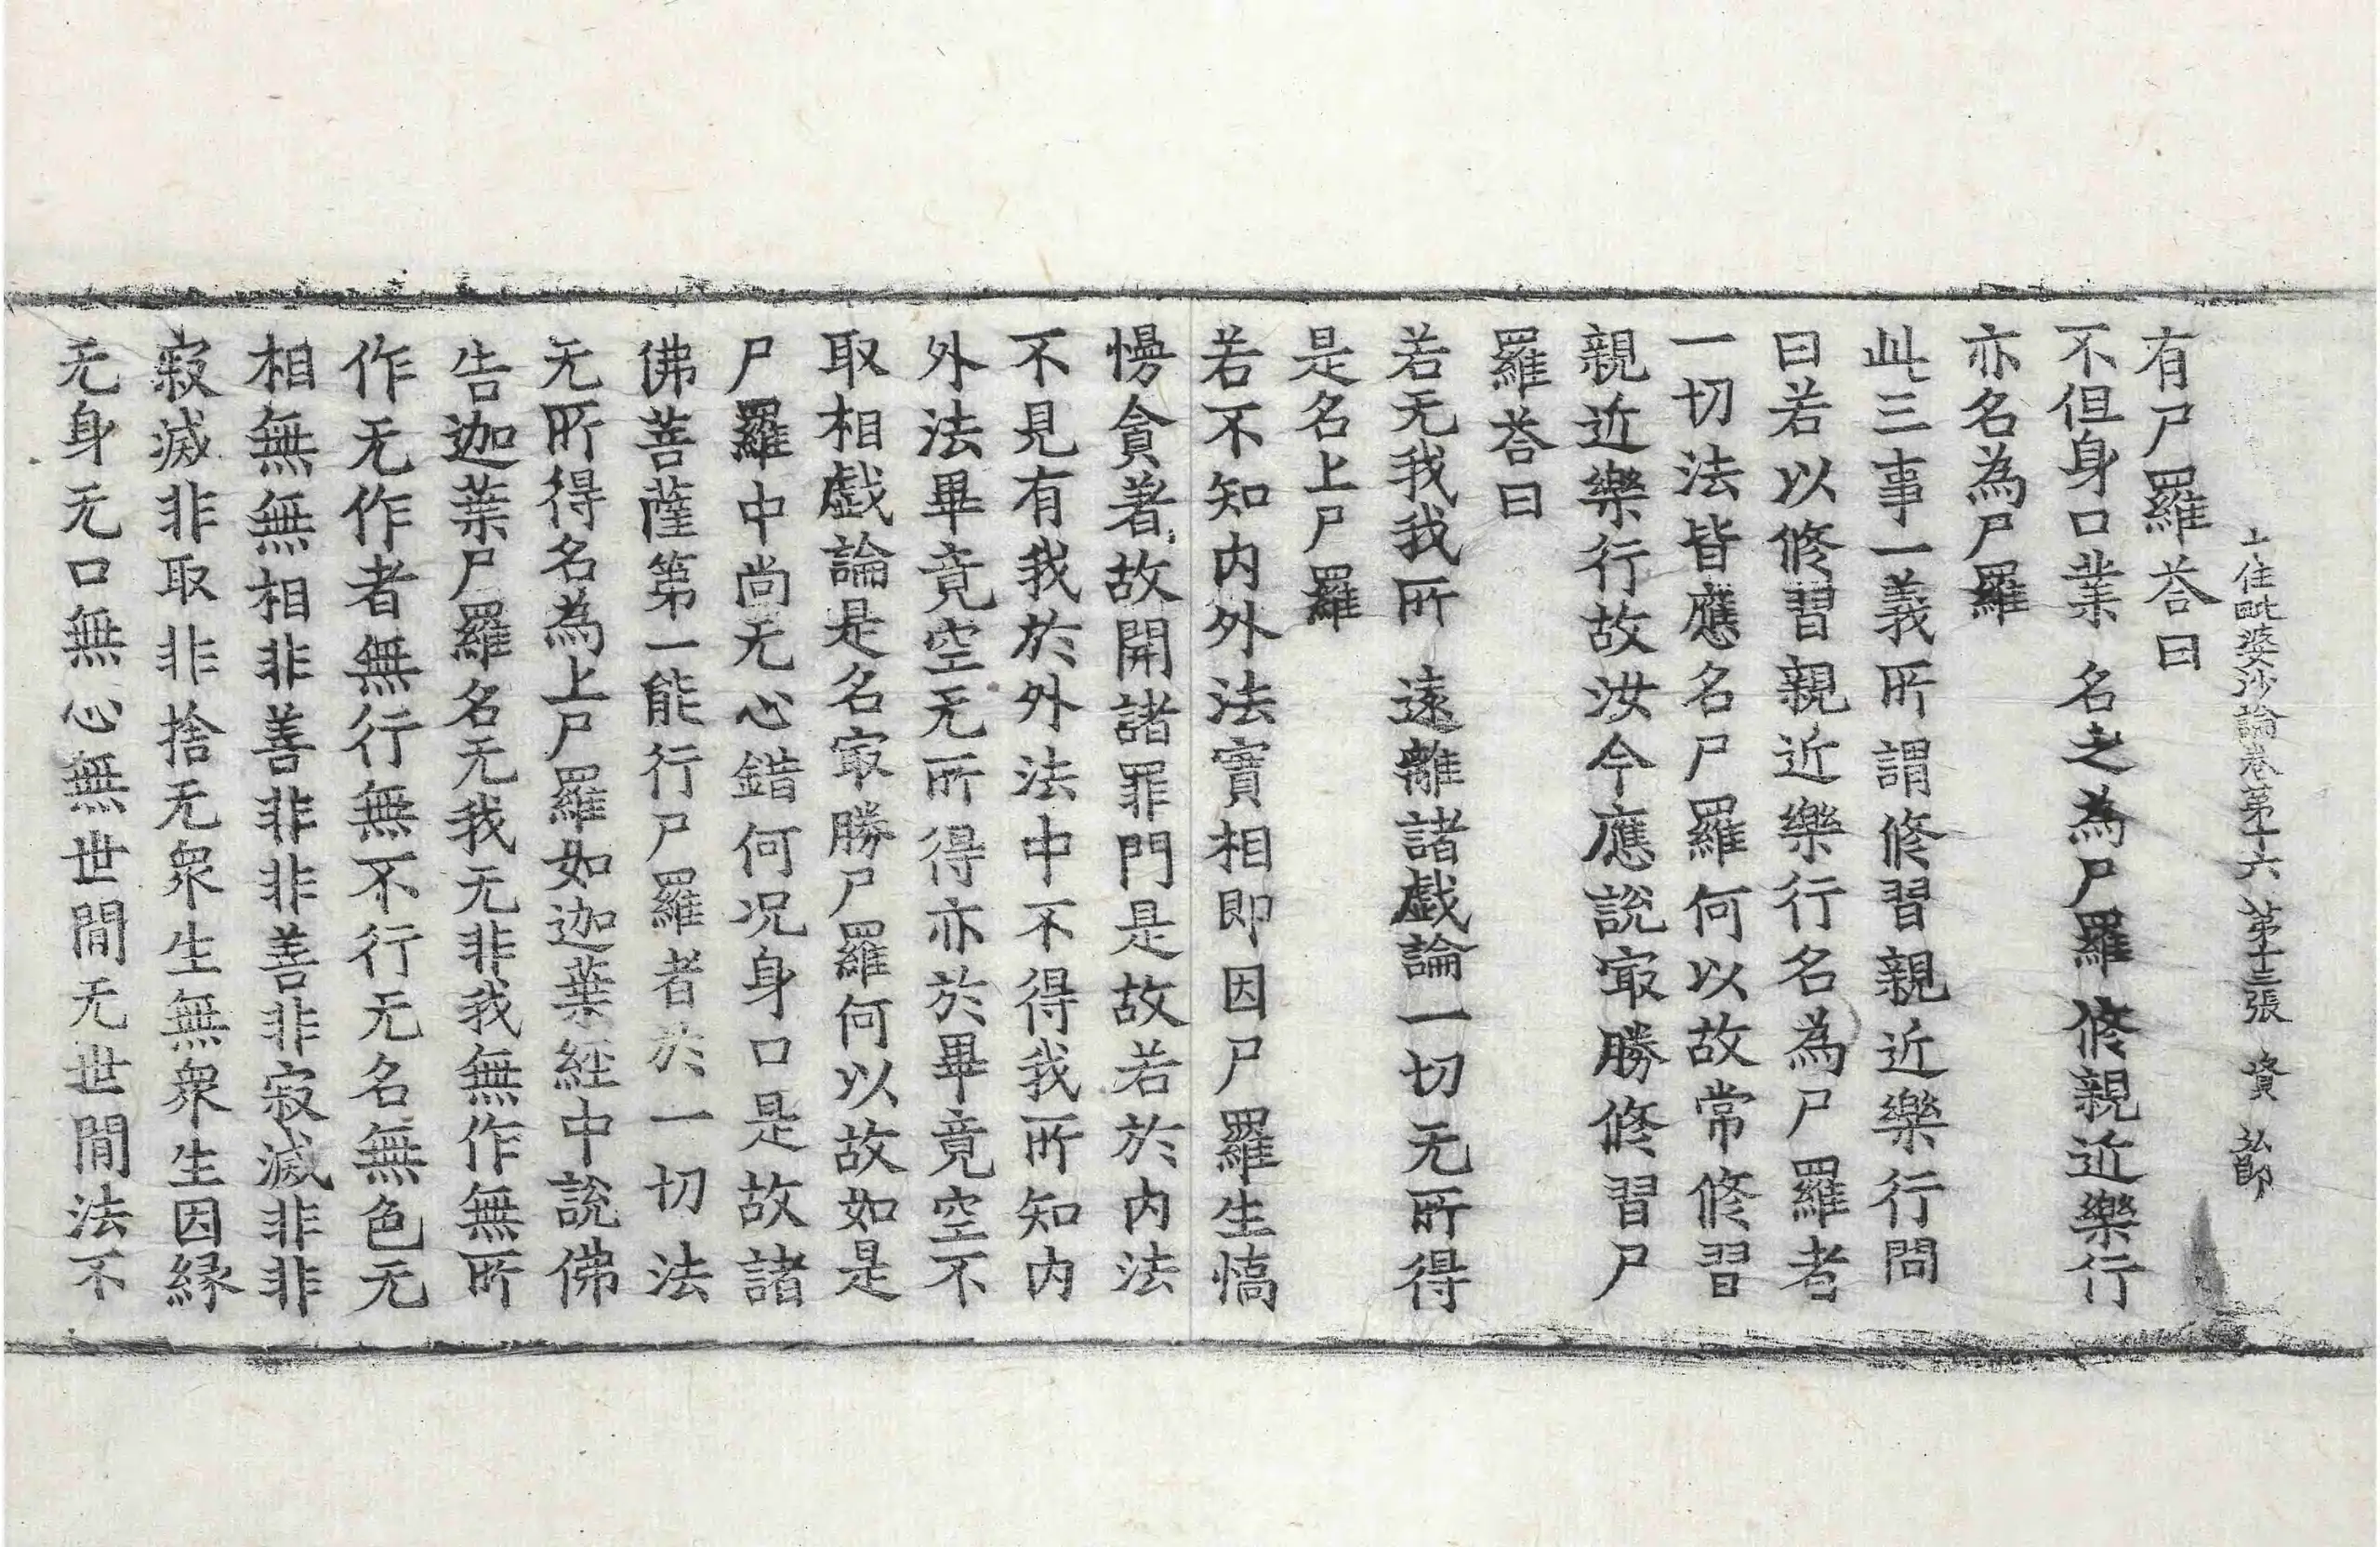 有尸羅荅曰
十住毗婆沙論卷第十六 第十三張 資 弘郎
不但身口業 名之為尸羅 修親近樂行
亦名為尸羅
此三事一義所謂修習親近樂行問
曰若以修習親近樂行名為尸羅者
一切法皆應名尸羅何以故常修習
親近樂行故汝今應說㝡勝修習尸
羅荅曰
若无我我所 遠離諸戲論一切无所得
是名上尸羅
若不知内外法實相即因尸羅生憍
慢貪著故開諸罪門是故若於内法
不見有我於外法中不得我所知内
外法畢竟空无所得亦於畢竟空不
取相戲論是名㝡勝尸羅何以故如是
尸羅中尚无心錯何况身口是故諸
佛菩薩第一能行尸羅者於一切法
无所得名為上尸羅如迦葉経中說佛
告迦葉尸羅名无我无非我無作無所
作无作者無行無不行无名無色无
相無無相非善非非善非寂滅非非
寂滅非取非捨无衆生無衆生因緣
无身无口無心無世間无世間法不